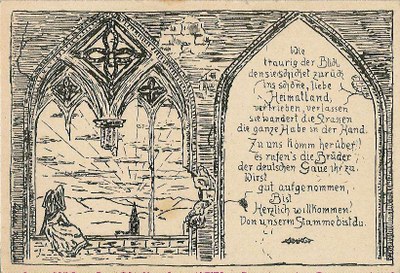 Wie
traurig der Blick
den sie schicket zurück
ins schöne, liebe
Heimatland,
vertrieben, verlassen
sie wandert die Straßen
die ganze Habe in der Hand.
Zu uns komm herüber!
es rufen's die Brüder
der deutschen Gaue ihr zu.
Wirst
gut aufgenommen,
Bist
Herzlich willkommen!
Von unserm Stamme bist du.